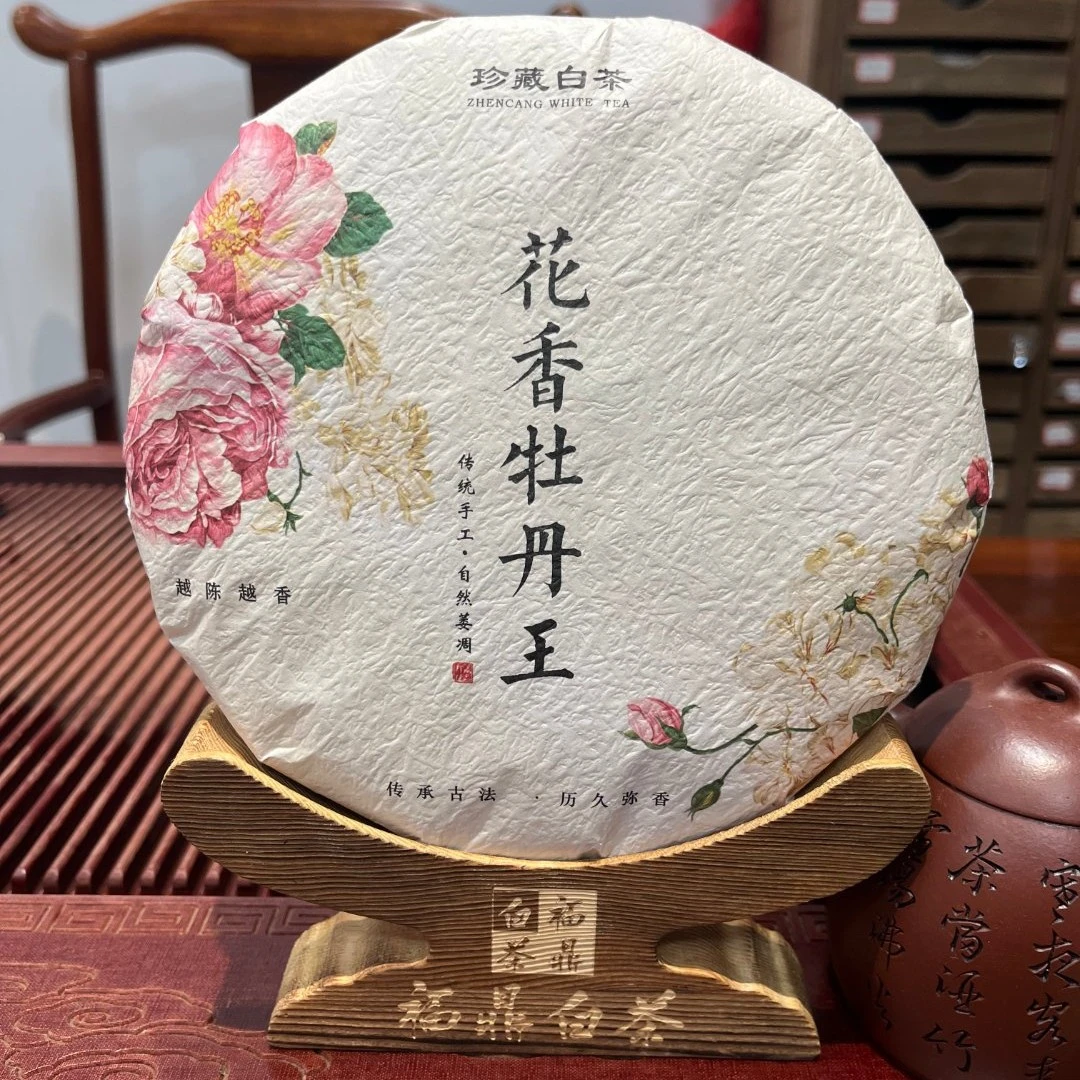 珍藏白茶
ZHENCANG WHITE TEA
花香牡丹王
传统手工·自然萎凋
越陈越香
传承古法·历久弥香
福鼎
白茶
福鼎白茶
寒夜客
茶當酒竹